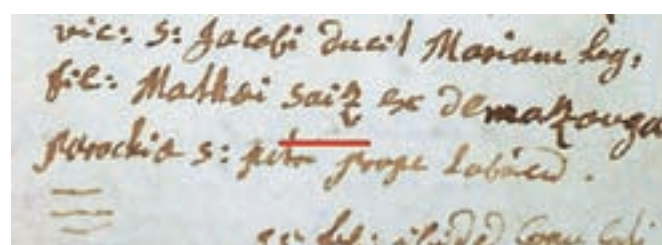 vic: S: Jacobi ducit Mariam leg:
fil: Mathæi Saiz ex Demazouga
parochia S: petri prope Labacū.